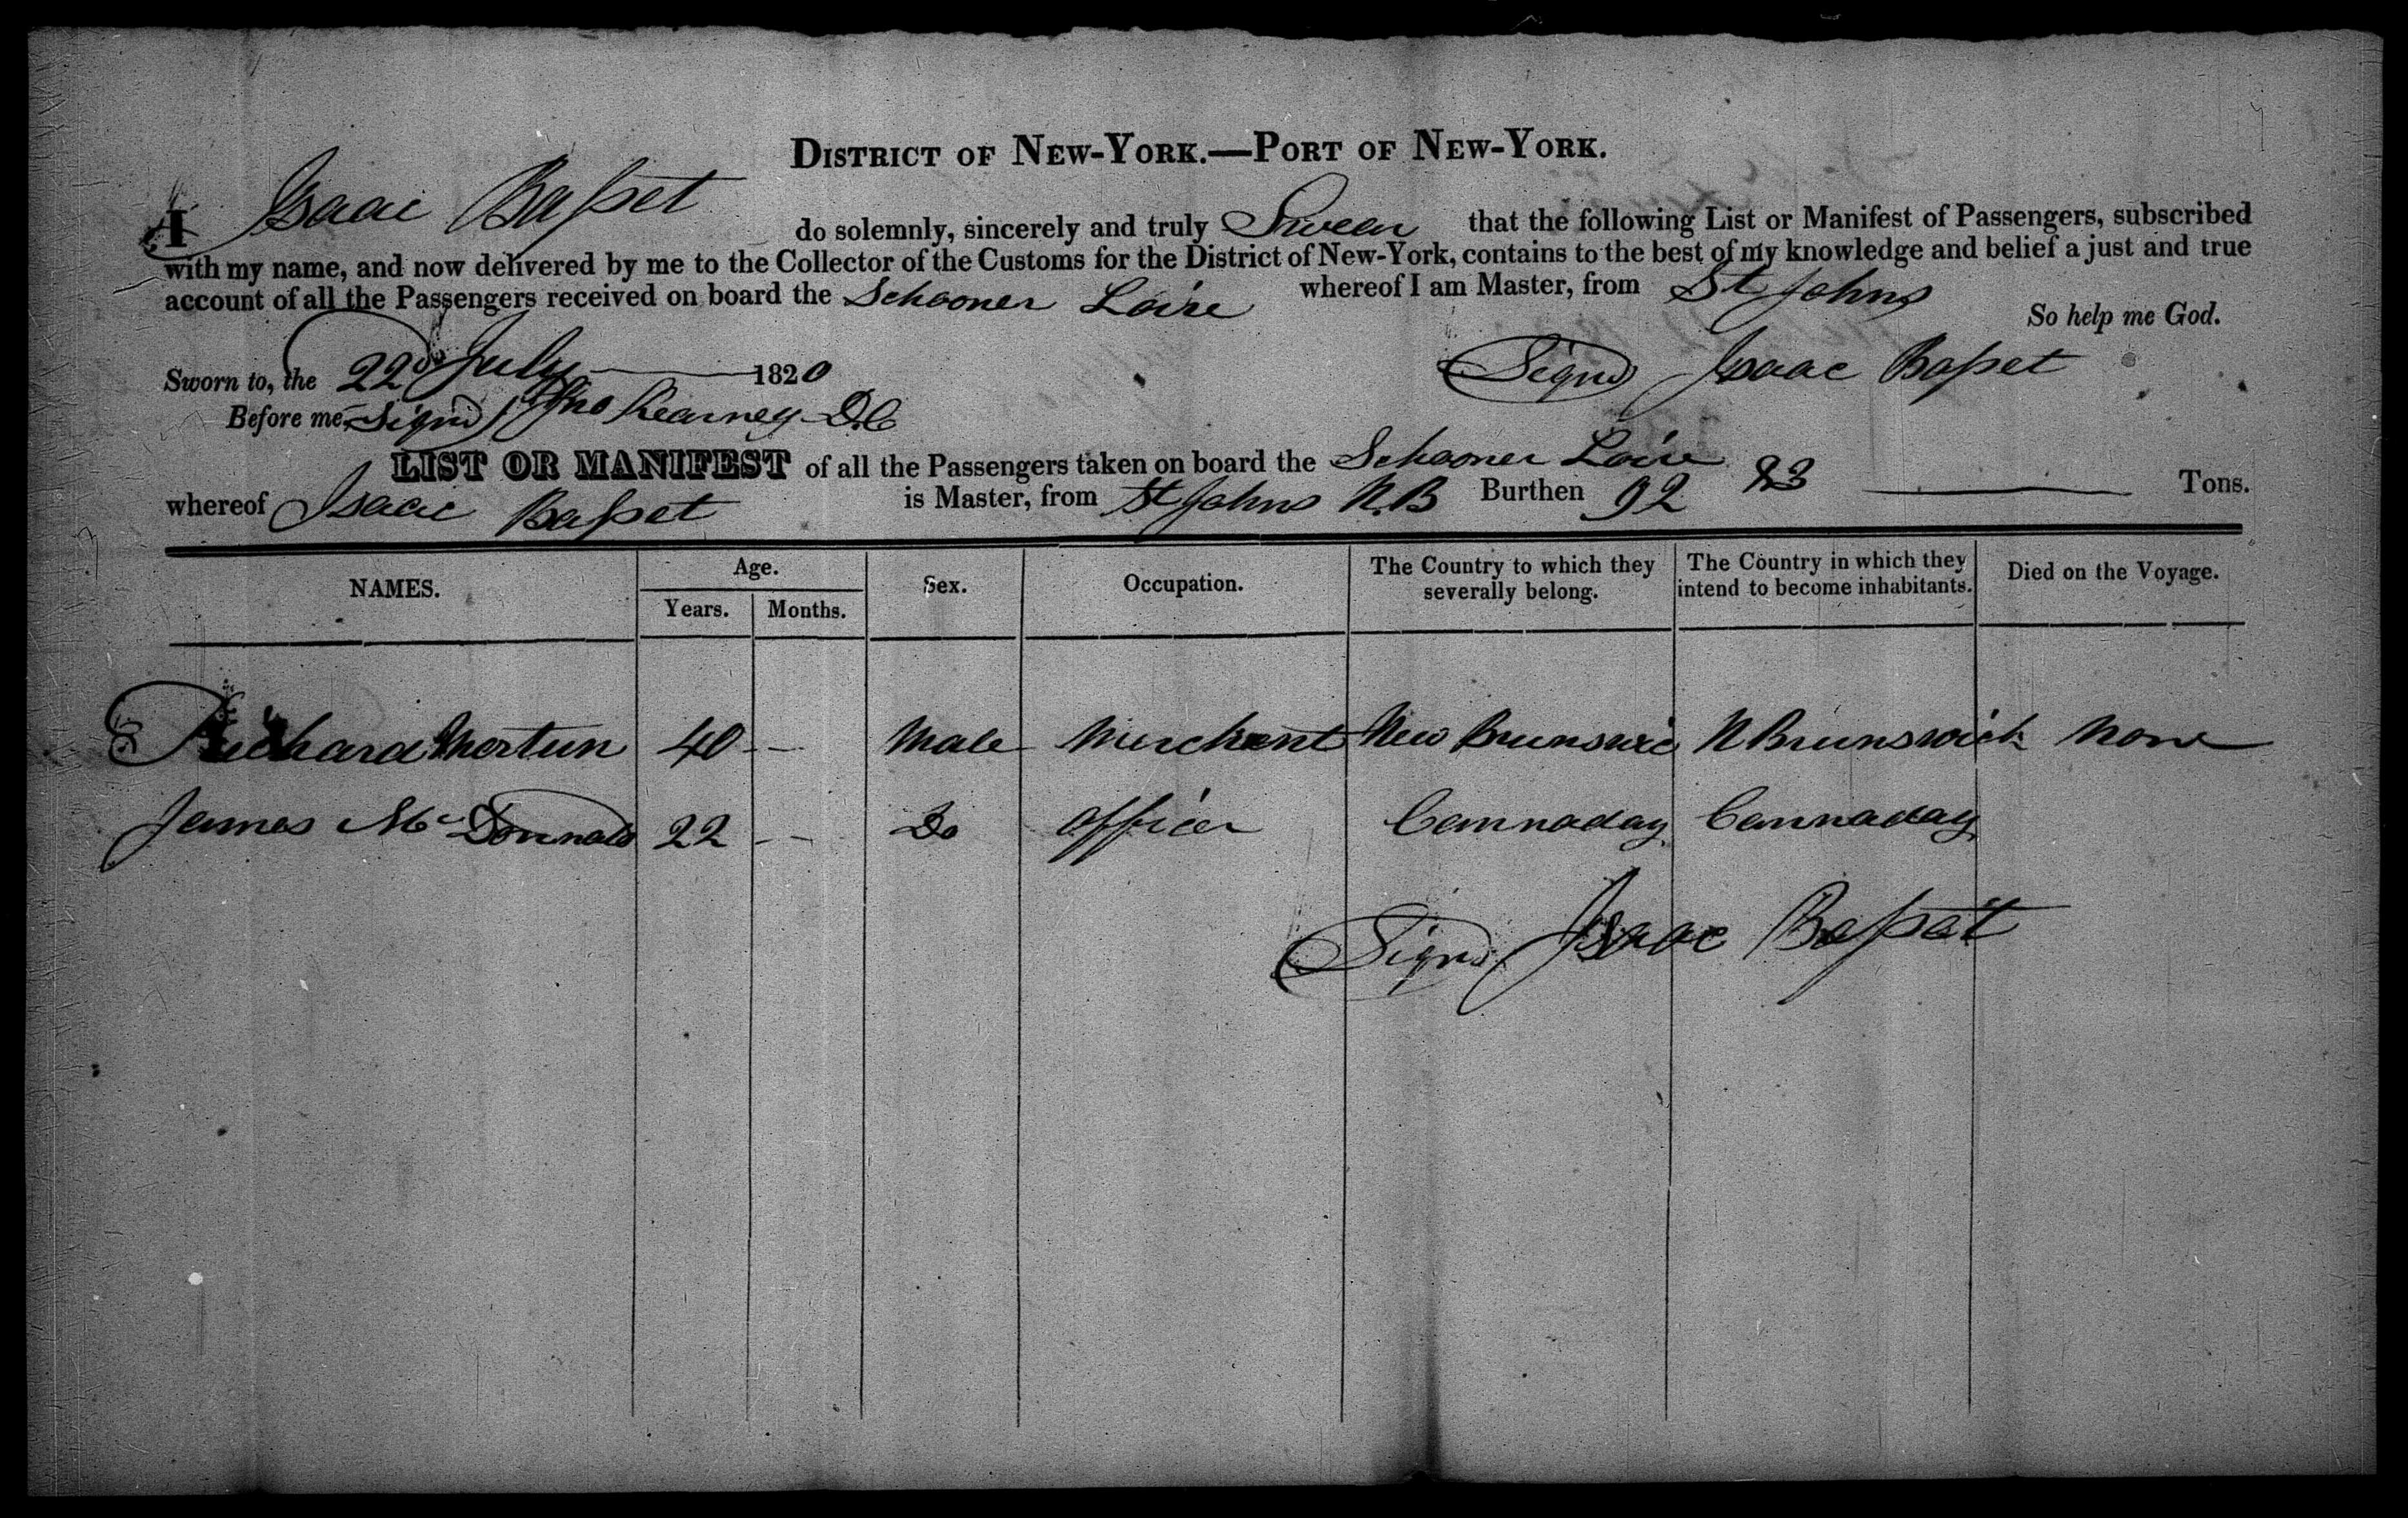 DISTRICT OF NEW-YORK.—PORT OF NEW-YORK.
I Isaac Basset do solemnly, sincerely and truly Swear that the following List or Manifest of Passengers, subscribed
with my name, and now delivered by me to the Collector of the Customs for the District of New-York, contains to the best of my knowledge and belief a just and true
account of all the Passengers received on board the Schooner Loire whereof I am Master, from St Johns
So help me God.
Sworn to, the 22d July 1820 Signd Isaac Basset
Before me, Signd Jno Kearney D.C
LIST OR MANIFEST of all the Passengers taken on board the Schooner Loire
whereof Isaac Basset is Master, from St Johns N.B Burthen 92 23 Tons.
NAMES. Age. Years. Months. Sex. Occupation. The Country to which they severally belong. The Country in which they intend to become inhabitants. Died on the Voyage.
Richard Mortun 40 - — Male Merchant New Brunswic N Brunswick None
James Mc Donnald 22 - - Do officer Cannaday Cannaday
Signd Isaac Basset